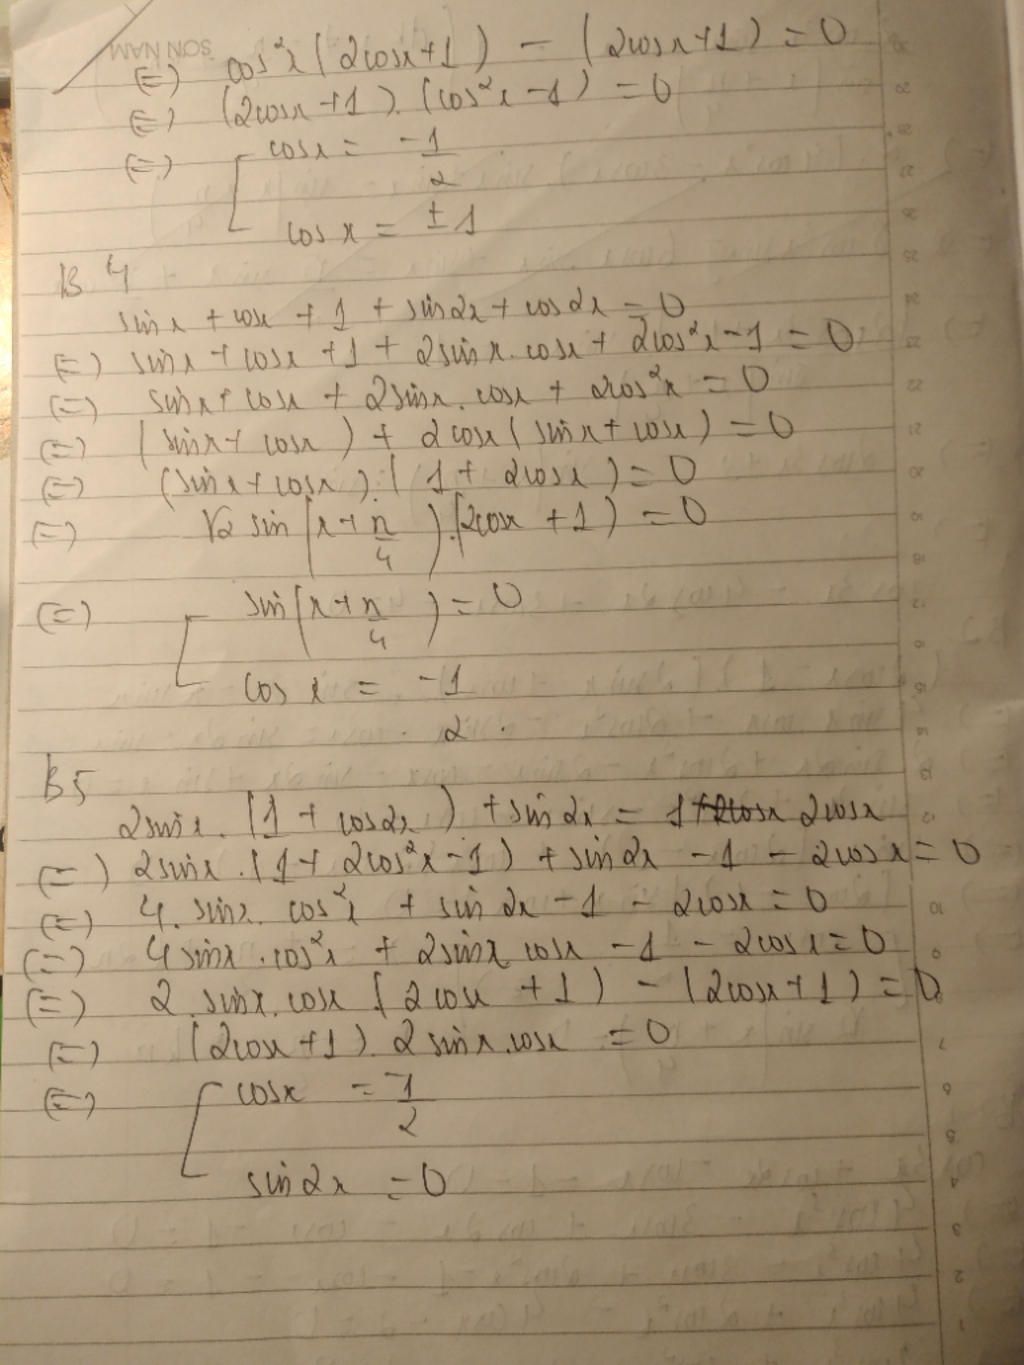 SON NAM
(=) cos²x (2cosx+1) - (2cosx+1) = 0
(=) (2cosx+1).(cos²x-1) = 0
(=) [ cosx = -1/2
cosx = ±1
B4
sinx + cosx + 1 + sin2x + cos2x = 0
(=) sinx + cosx + 1 + 2sinx.cosx + 2cos²x - 1 = 0
(=) sinx + cosx + 2sinx.cosx + 2cos²x = 0
(=) (sinx + cosx) + 2cosx (sinx + cosx) = 0
(=) (sinx + cosx).(1 + 2cosx) = 0
(=) √2 sin(x + π/4).(2cosx + 1) = 0
(=) [ sin(x + π/4) = 0
cosx = -1/2.
B5
2sinx.(1 + cos2x) + sin2x = 1 + 2cosx
(=) 2sinx.(1 + 2cos²x - 1) + sin2x - 1 - 2cosx = 0
(=) 4.sinx.cos²x + sin2x - 1 - 2cosx = 0
(=) 4sinx.cos²x + 2sinx cosx - 1 - 2cosx = 0
(=) 2.sinx.cosx (2cosx + 1) - (2cosx + 1) = 0
(=) (2cosx+1).2sinx.cosx = 0
(=) [ cosx = -1/2
sin2x = 0